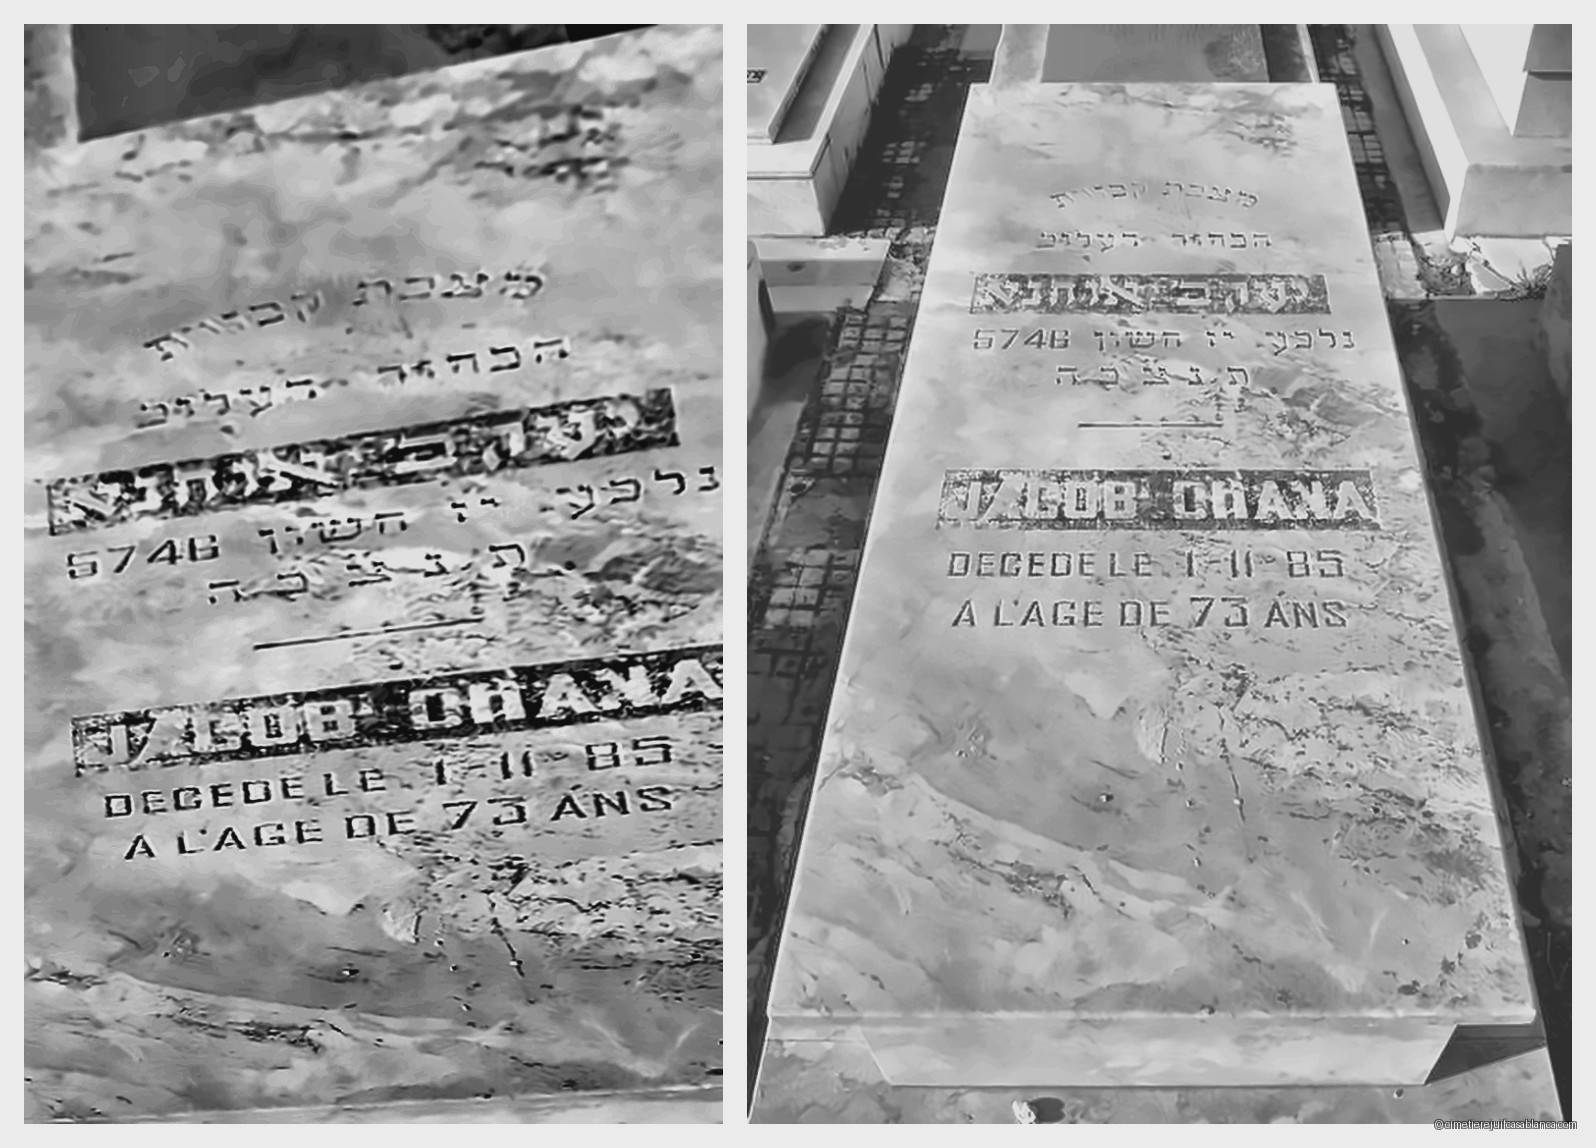 מצבת קבורת
הבחור העלוב
יעקב אוחנא
נלבע. יז חשון 5746
ת נ צ ב ה
JACOB OHANA
DECEDE LE 1-11-85
A L'AGE DE 73 ANS
מצבת קבורת
הבחור העלוב
יעקב אוחנא
נלבע. יז חשון 5746
ת נ צ ב ה
JACOB OHANA
DECEDE LE 1-11-85
A L'AGE DE 73 ANS
@cimetierejuifcasablanca.com